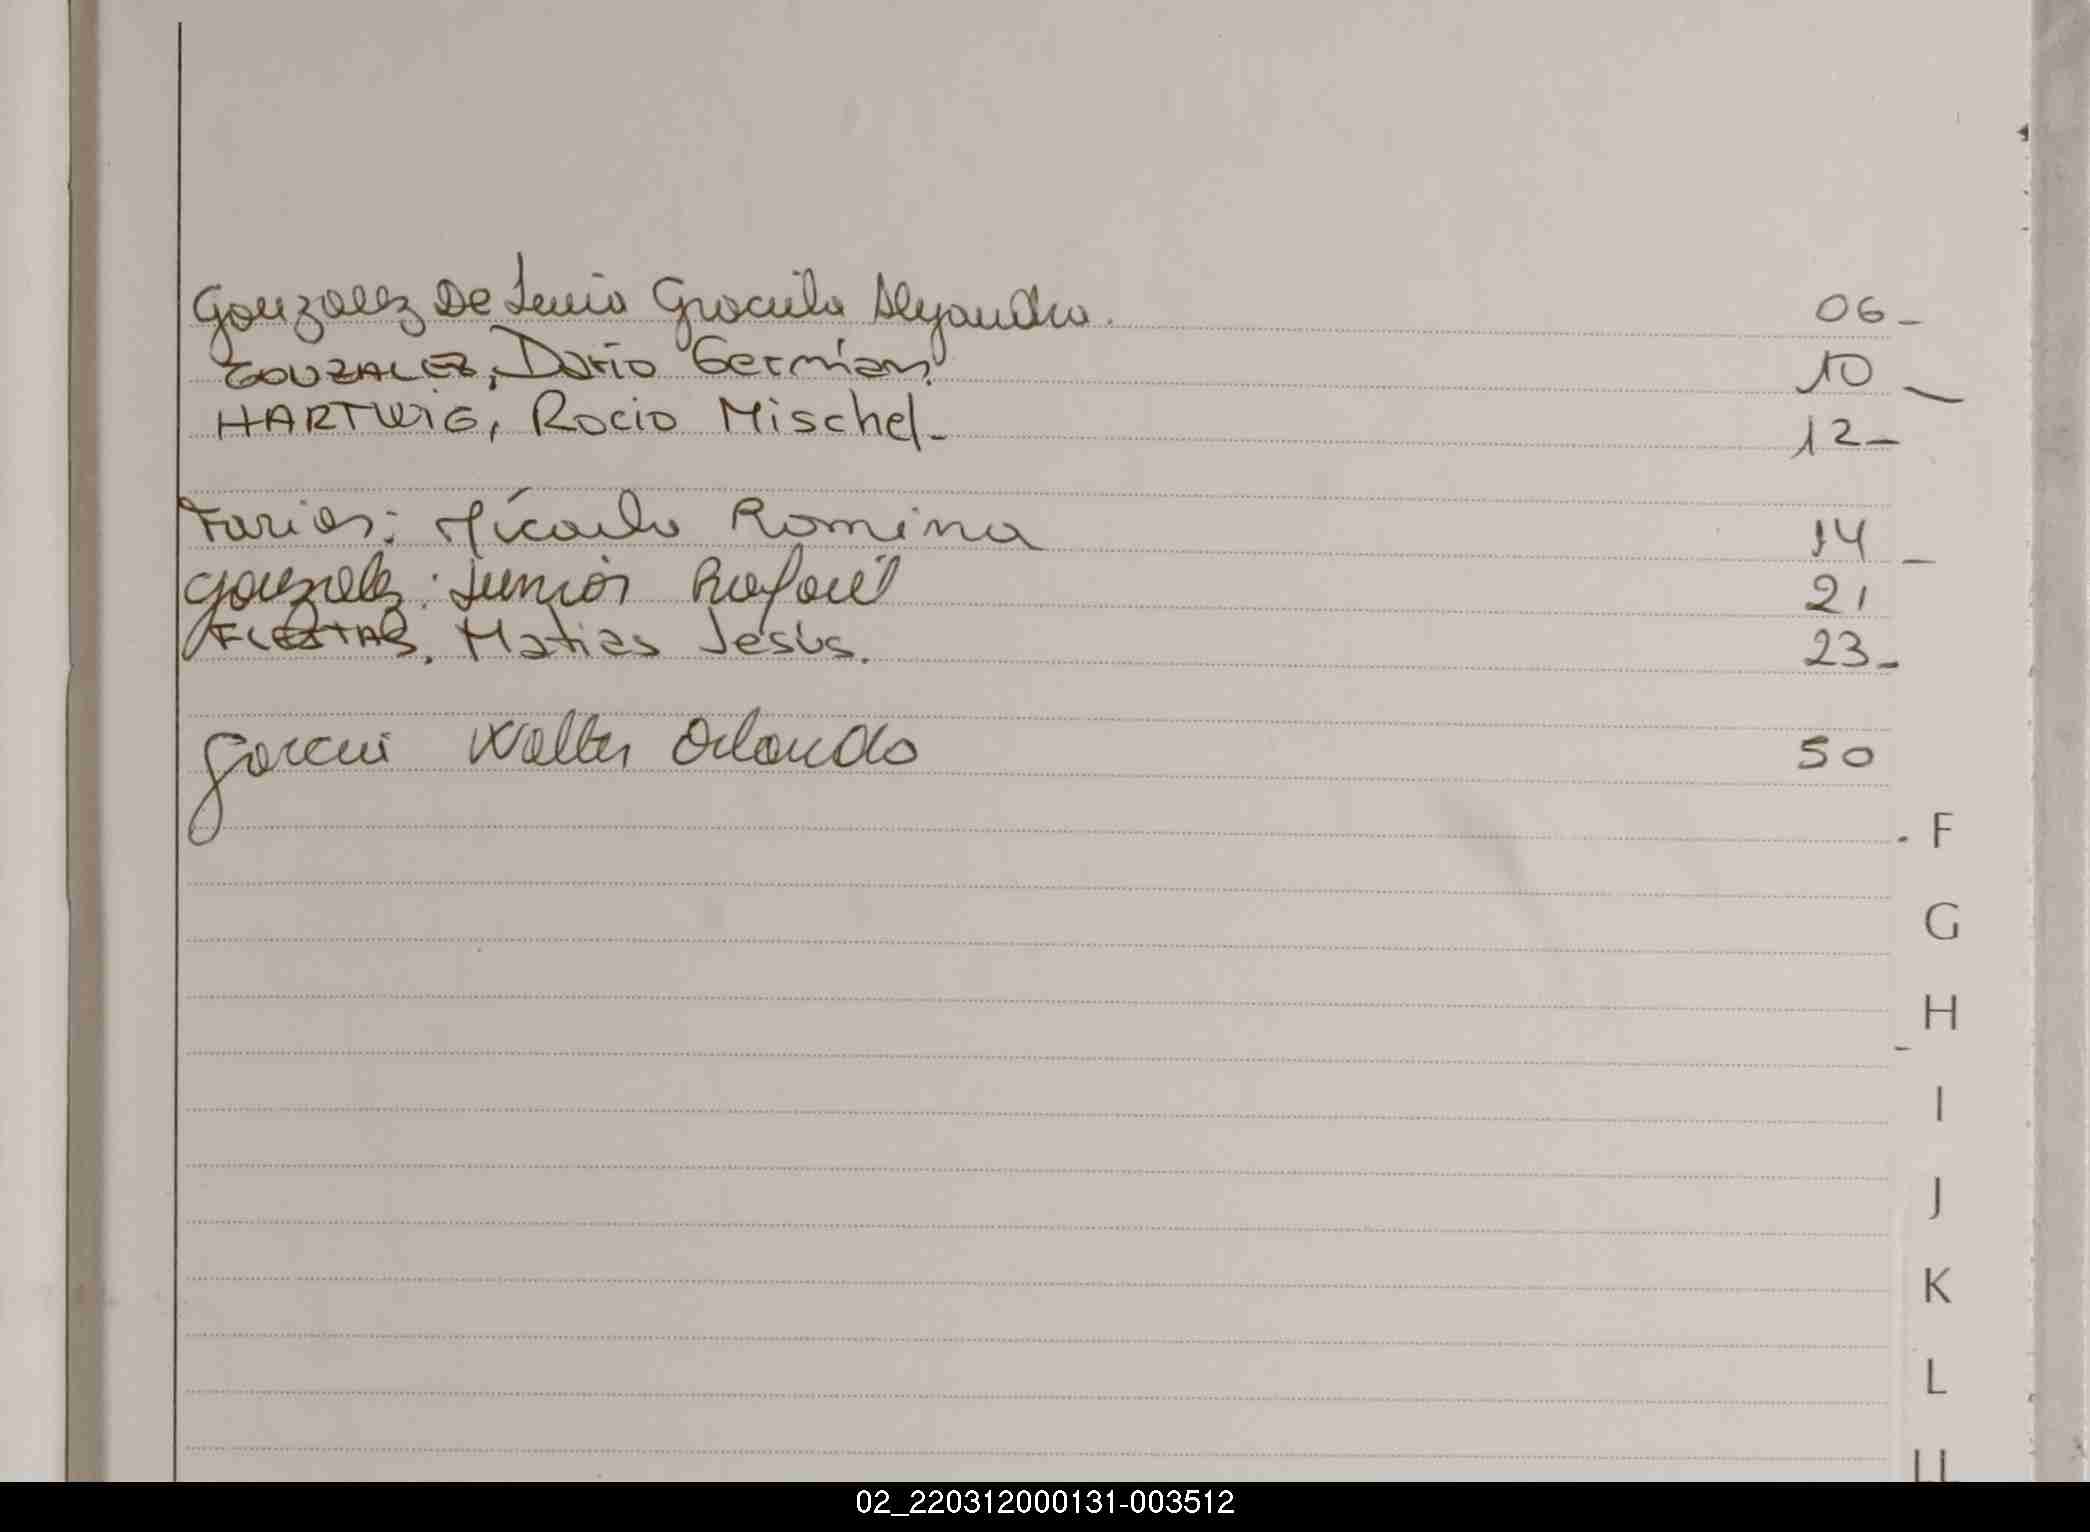 Gonzalez De Graciela Alejandra. 06-
GONZALEZ, Dario Germán. 10
HARTWIG, Rocio Mischel. 12-
Farias: Micaela Romina 14
Gonzalez: Junior Rafael 21
Matias Jesús. 23-
Garcia Walter Orlando 50
F
G
H
I
J
K
L
LL
02_220312000131-003512